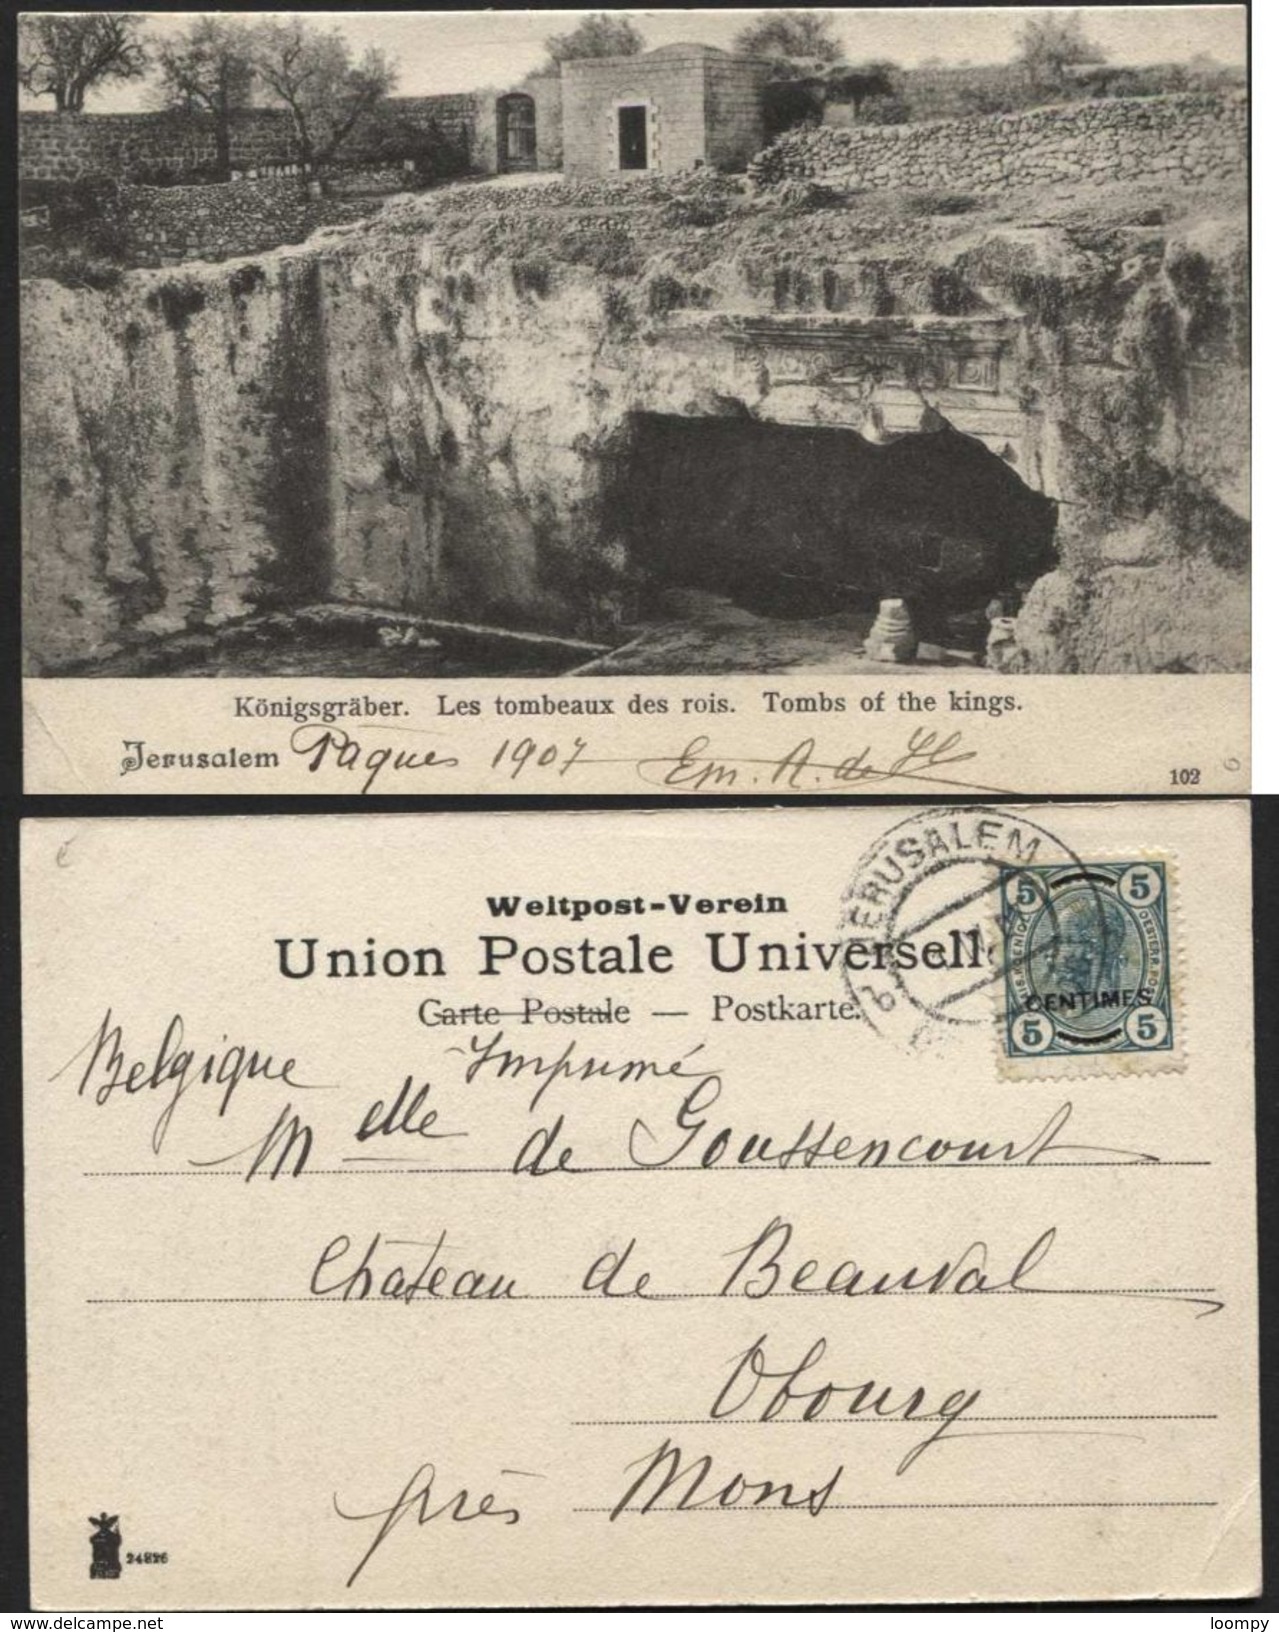 Königsgräber. Les tombeaux des rois. Tombs of the kings.
Jerusalem Pâques 1907 Em. A. de
102
Weltpost-Verein
Union Postale Universelle
Carte Postale — Postkarte.
JERUSALEM
5 5
CENTIMES
5 5
Belgique Imprimé
Melle de Goussencourt
Château de Beauval
Obourg
près Mons
24826
© www.delcampe.net
loompy